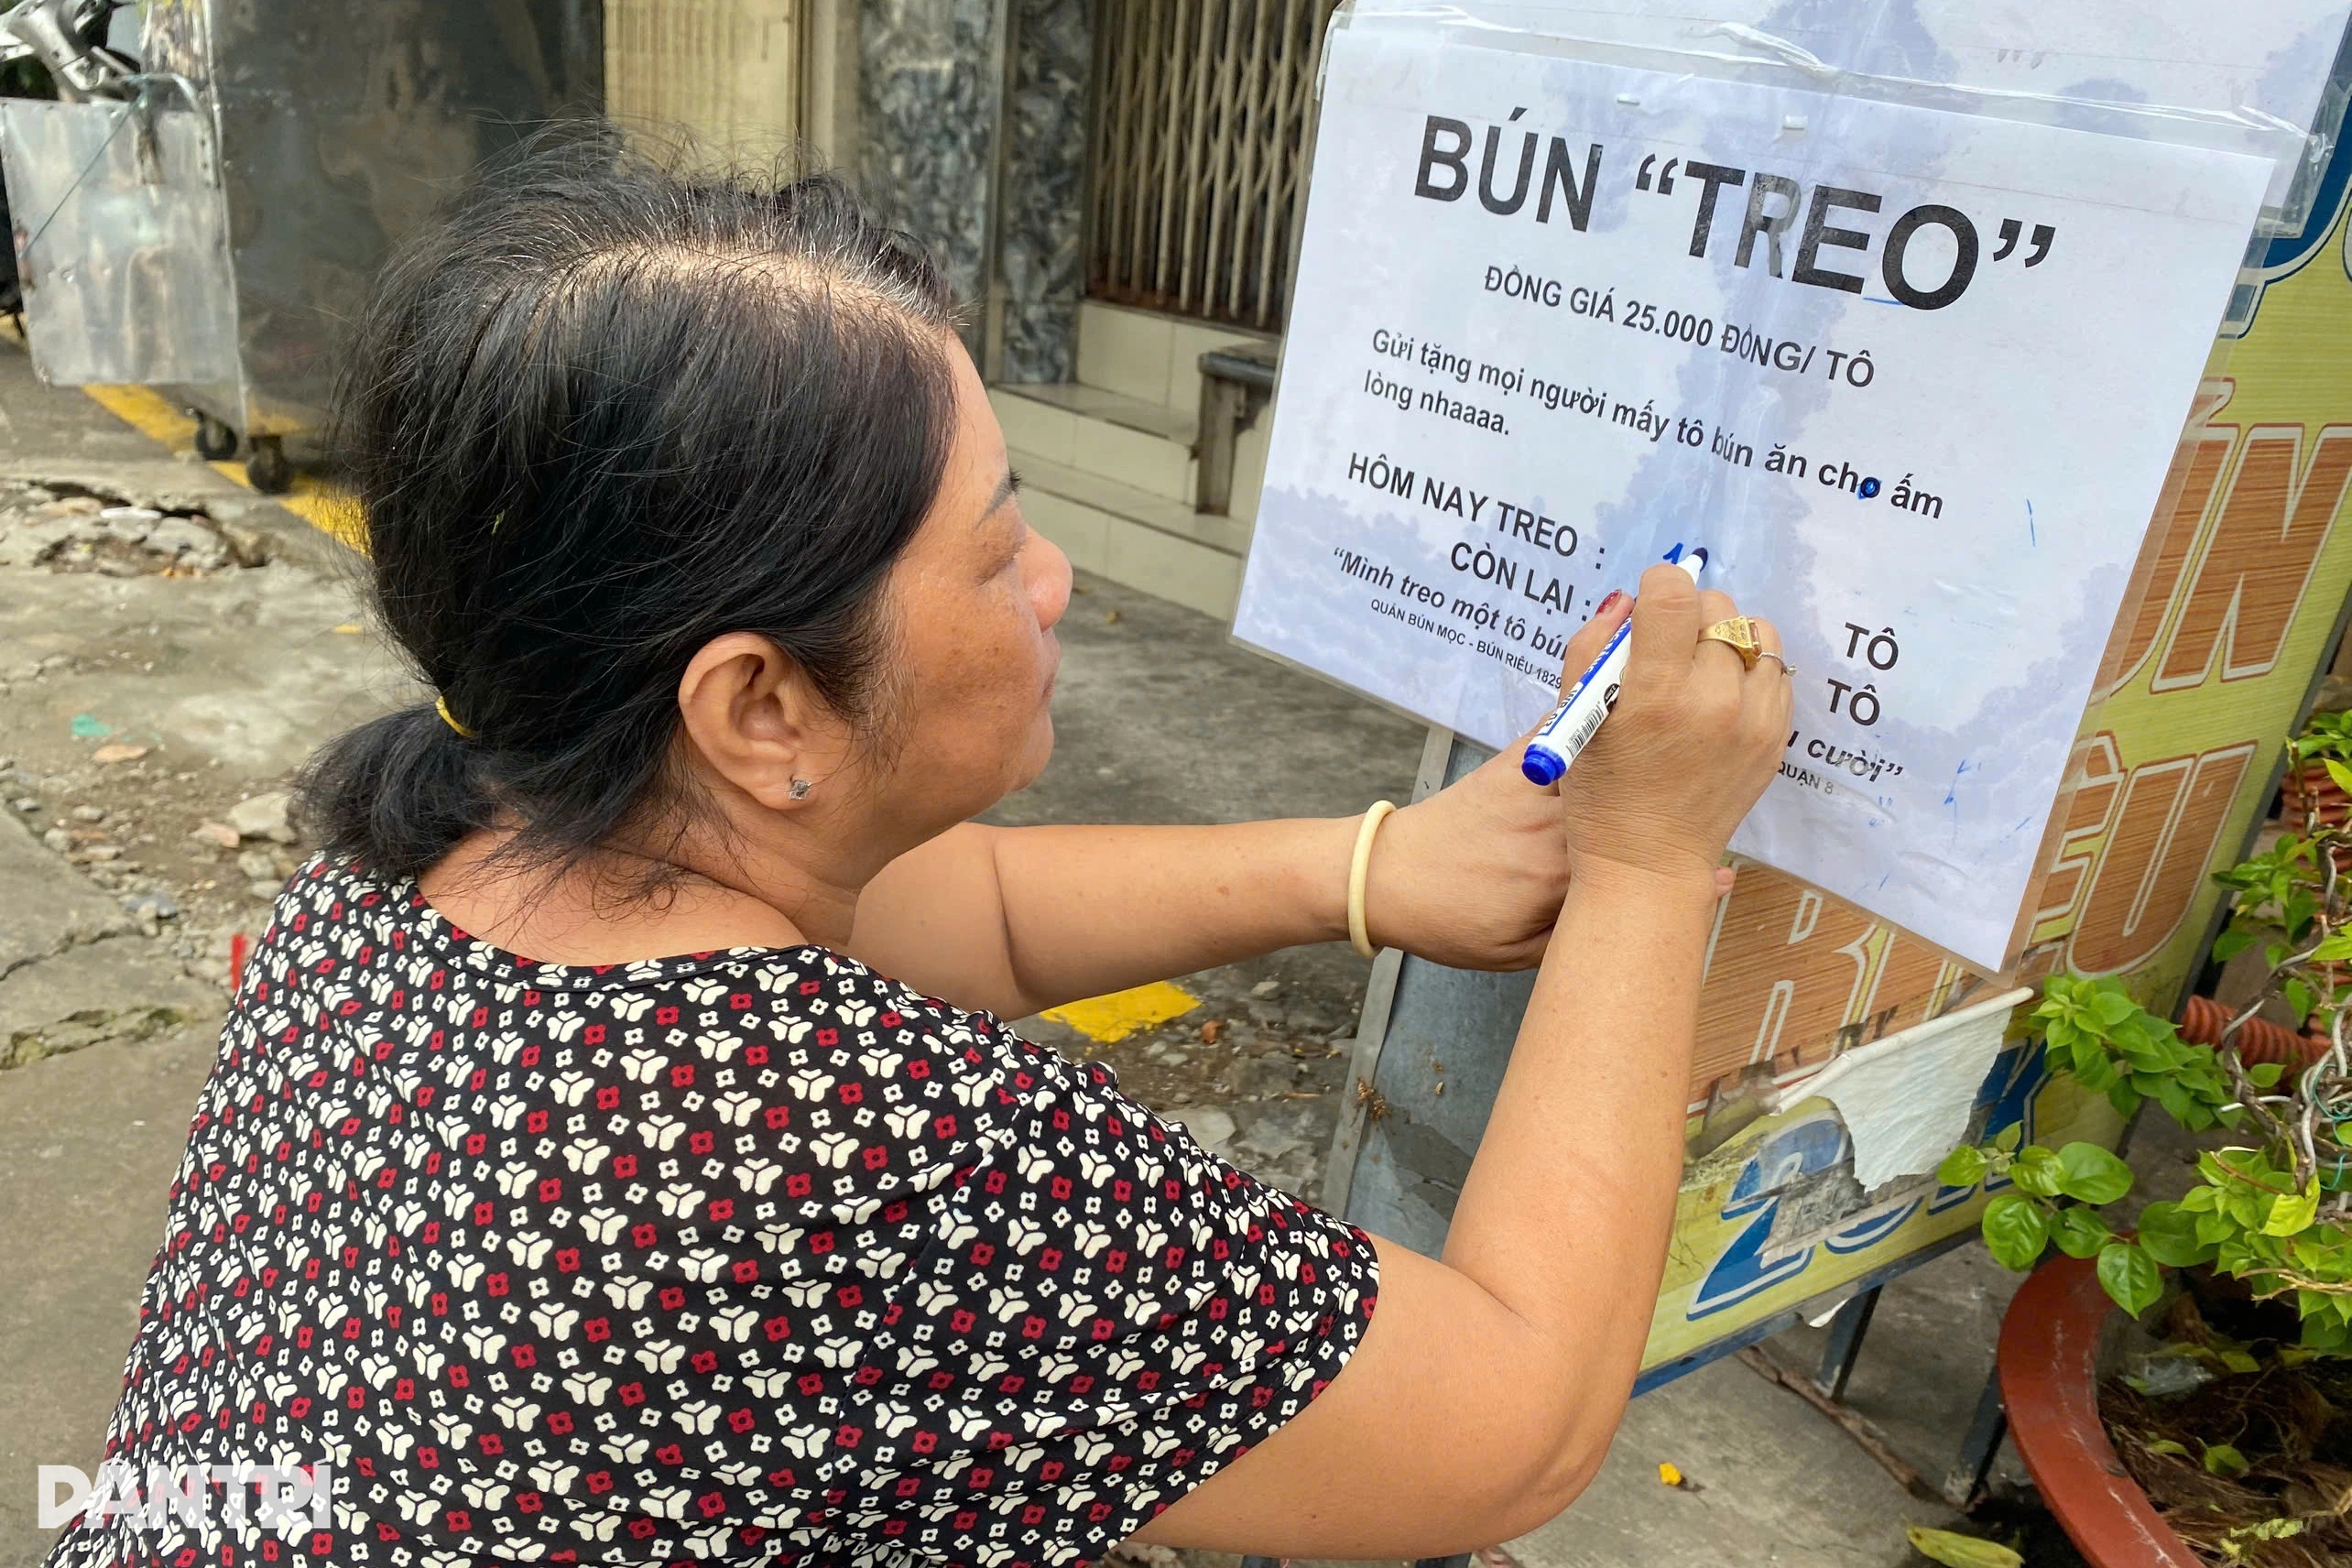 BÚN “TREO”
ĐỒNG GIÁ 25.000 ĐỒNG/ TÔ
Gửi tặng mọi người mấy tô bún ăn cho ấm
lòng nhaaaa.
HÔM NAY TREO : 1 TÔ
CÒN LẠI : TÔ
“Mình treo một tô bún cười”
QUÁN BÚN MỌC - BÚN RIÊU 1829 QUẬN 8
RIÊU
DÂN TRÍ